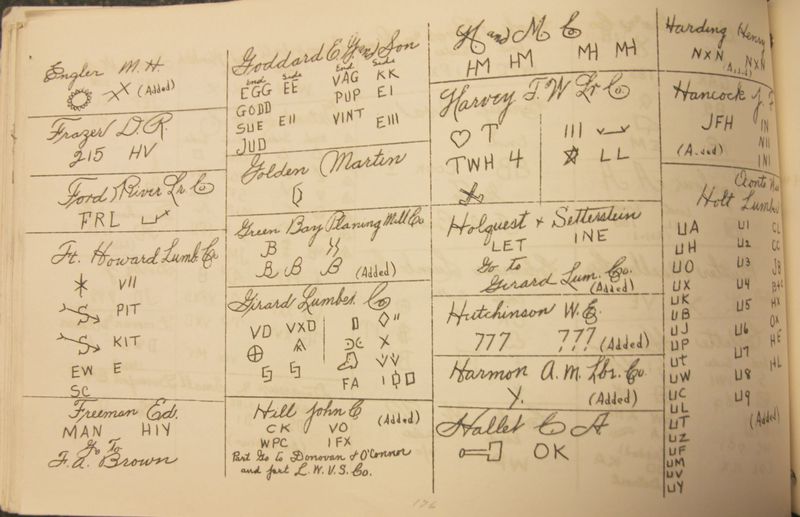 Engler M. H.
XX (Added)
Frazer D. R.
215 HV
Ford River Lr Co
FRL
Ft. Howard Lumb. Co
VII
S PIT
S KIT
EW E
SC
Freeman Ed.
MAN HIY
Go To
F. A. Brown
Goddard E. Y. and Son
End Side End Side
EGG EE VAG KK
GODD PUP EI
SUE EII VINT EIII
JUD
Golden Martin
Green Bay Planing Mill Co
B
B B B (Added)
Girard Lumber Co
VD VXD
X
S S VV
FA
Hill John C (Added)
CK VO
WPC IFX
Part Go to Donovan & O'Connor
and part L. W. V. S. Co.
H and M Co
HM HM MH MH
Harvey T. W Lr Co
T III
TWH 4 LL
Holquest + Setterstein
LET INE
Go to
Girard Lum. Co.
(Added)
Hutchinson W. E.
777 ??? (Added)
Harmon A. M. Lbr. Co.
Y. (Added)
Hallet C A
OK
Harding Henry
NXN NXN
(Added)
Hancock J.
JFH IN
(Added) NII
INI
Oconto
Holt Lumber
UA U1 CL
UH U2 CC
UO U3 JB
UX U4
UK U5 HX
UB OX
UJ U6 HE
UP U7
UT HL
UW U8
UC U9
UL
UT (Added)
UZ
UF
UM
UV
UY
176